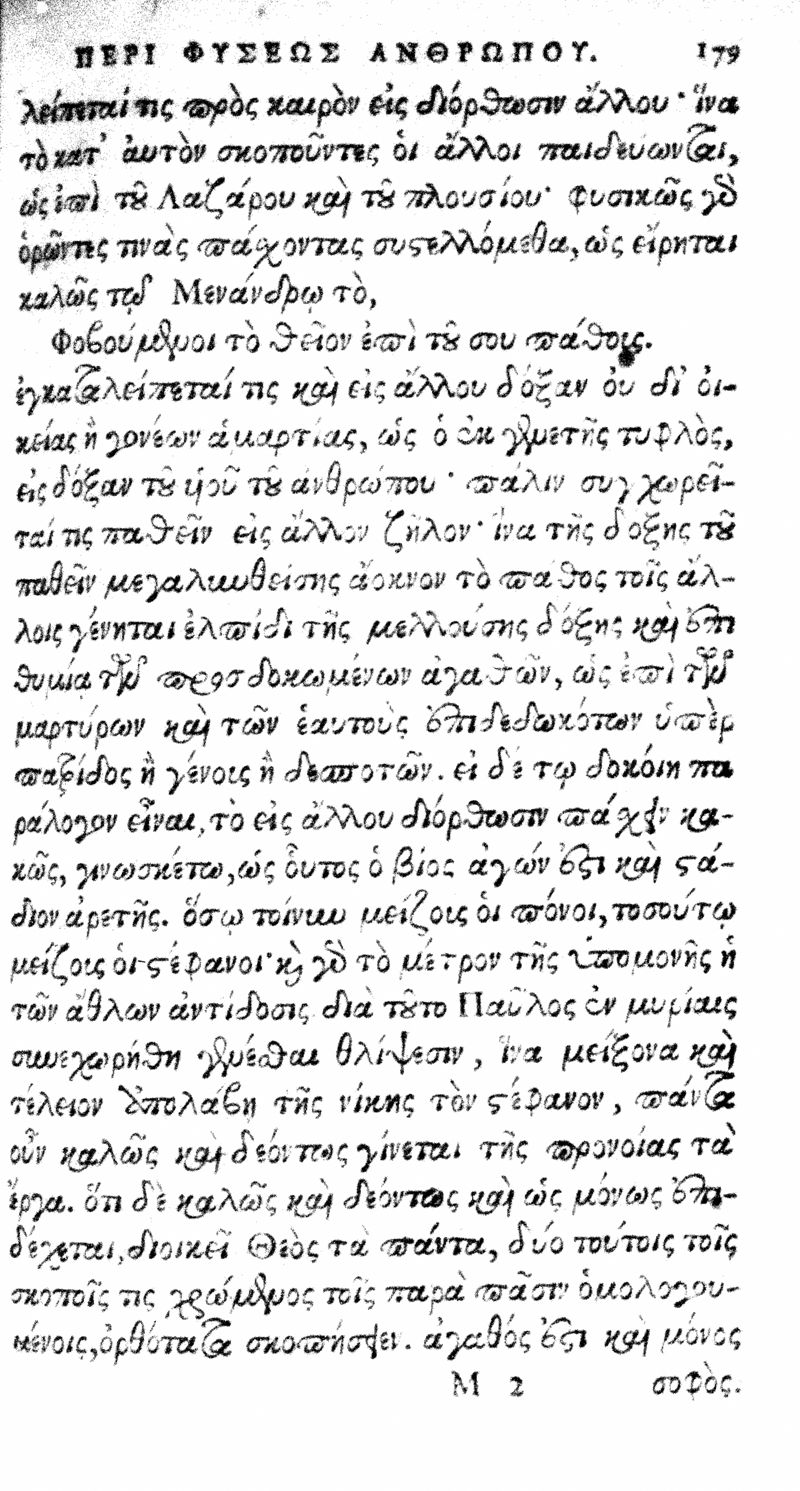 ΠΕΡΙ ΦΥΣΕΩΣ ΑΝΘΡΩΠΟΥ. 179
λείπεταί τις πρὸς καιρὸν εἰς διόρθωσιν ἄλλου· ἵνα
τὸ κατ' ἀυτὸν σκοποῦντες ὁι ἄλλοι παιδεύωνται,
ὡς ἐπὶ τοῦ Λαζάρου καὶ τοῦ πλουσίου· φυσικῶς γὰρ
ὁρῶντες τινὰς πάχοντας συστελλόμεθα, ὡς εἴρηται
καλῶς τῷ Μενάνδρῳ τὸ,
Φοβούμενοι τὸ θεῖον ἐπὶ τοῦ σου πάθους.
ἐγκαταλείπεταί τις καὶ εἰς ἄλλου δόξαν ὀυ δι' ὀι-
κείας ἢ γονέων ἁμαρτίας, ὡς ὁ ἐκ γενετῆς τυφλὸς,
εἰς δόξαν τοῦ ὑιοῦ τοῦ ἀνθρώπου· πάλιν συγχωρεῖ-
ταί τις παθεῖν εἰς ἄλλον ζῆλον· ἵνα τῆς δόξης τοῦ
παθεῖν μεγαλυνθείσης ἄοκνον τὸ πάθος τοῖς ἄλ-
λοις γένηται ἐλπίδι τῆς μελλούσης δόξης καὶ ἐπι
θυμίᾳ τῶν προσδοκωμένων ἀγαθῶν, ὡς ἐπὶ τῶν
μαρτύρων καὶ τῶν ἑαυτοὺς ἐπιδεδωκότων ὑπὲρ
πατρίδος ἢ γένοις ἢ δεσποτῶν. εἰ δέ τῳ δοκόιη πα
ράλογον εἶναι, τὸ εἰς ἄλλου διόρθωσιν πάχειν κα-
κῶς, γινωσκέτω, ὡς οὗτος ὁ βίος ἀγών ἐστι καὶ στά-
διον ἀρετῆς. ὅσῳ τοίνυν μείζους ὁι πόνοι, τοσούτῳ
μείζοις ὁι στέφανοι· καὶ γὰρ τὸ μέτρον τῆς ὑπομονῆς ἡ
τῶν ἄθλων ἀντίδοσις διὰ τοῦτο Παῦλος ἐν μυρίαις
συνεχωρήθη γενέσθαι θλίψεσιν, ἵνα μείξονα καὶ
τέλειον ὑπολάβῃ τῆς νίκης τὸν στέφανον, πάντα
οὖν καλῶς καὶ δεόντως γίνεται τῆς προνοίας τὰ
ἔργα. ὅτι δὲ καλῶς καὶ δεόντως καὶ ὡς μόνως ἐπι-
δέχεται, διοικεῖ Θεὸς τὰ πάντα, δύο τούτοις τοῖς
σκοποῖς τις χρώμενος τοῖς παρὰ πᾶσιν ὁμολογου-
μένοις, ὀρθότατα σκοπήσειεν. ἀγαθός ἐστι καὶ μόνος
Μ 2 σοφὸς.